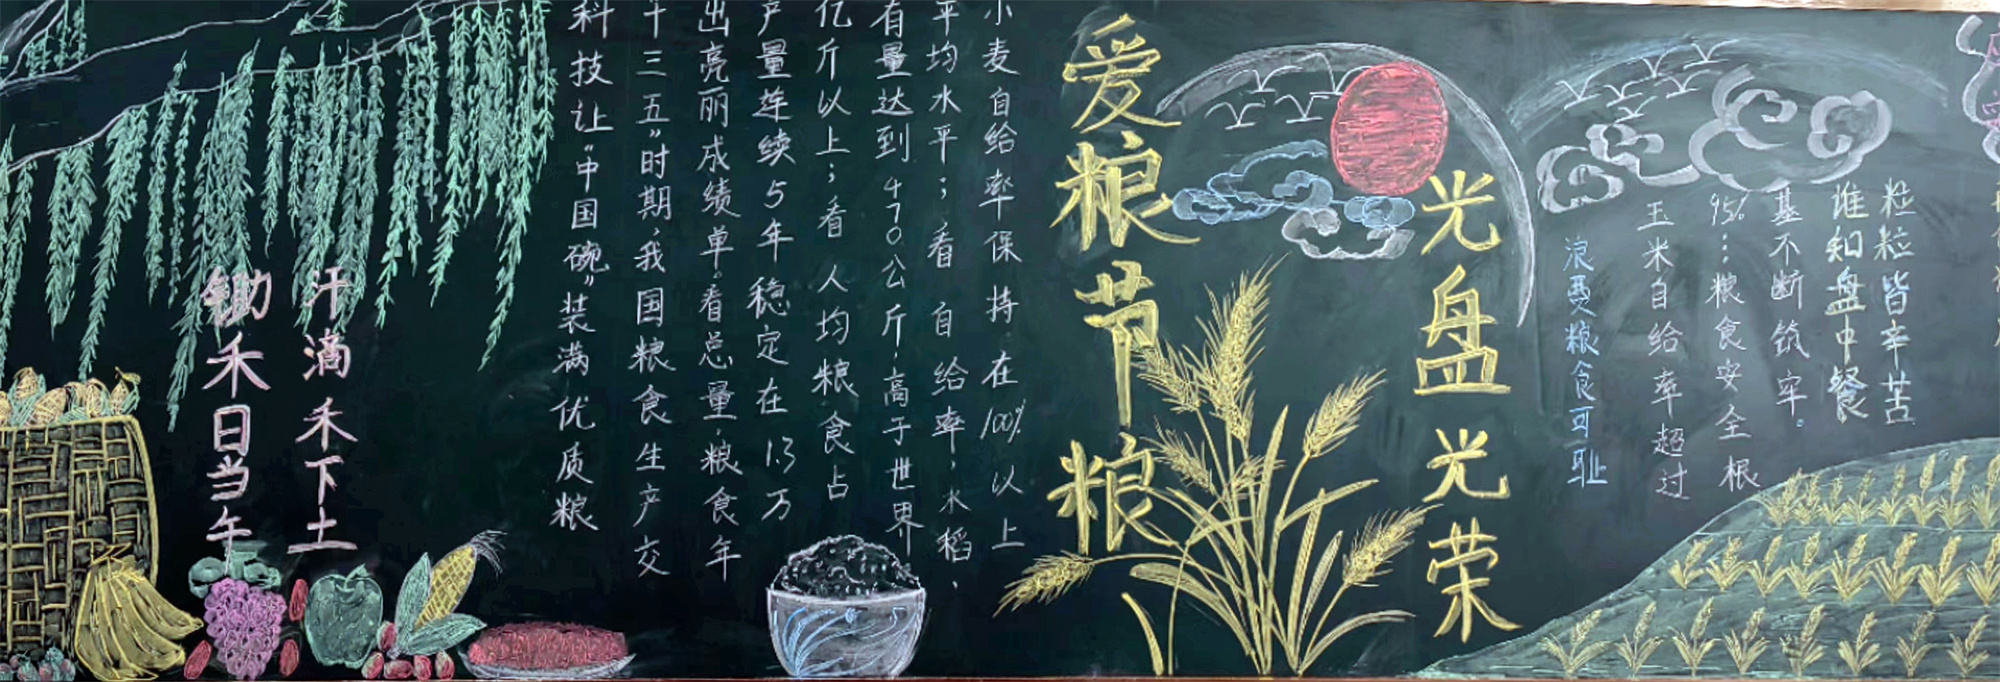 锄禾日当午
汗滴禾下土
科技让“中国碗”装满优质粮
十三五”时期，我国粮食生产交
出亮丽成绩单。看总量，粮食年
产量连续5年稳定在1.3万
亿斤以上；看人均粮食占
有量达到470公斤，高于世界
平均水平；看自给率，水稻、
小麦自给率保持在100%以上
爱粮节粮
光盘光荣
浪费粮食可耻
玉米自给率超过
95%…粮食安全根
基不断筑牢。
谁知盘中餐
粒粒皆辛苦